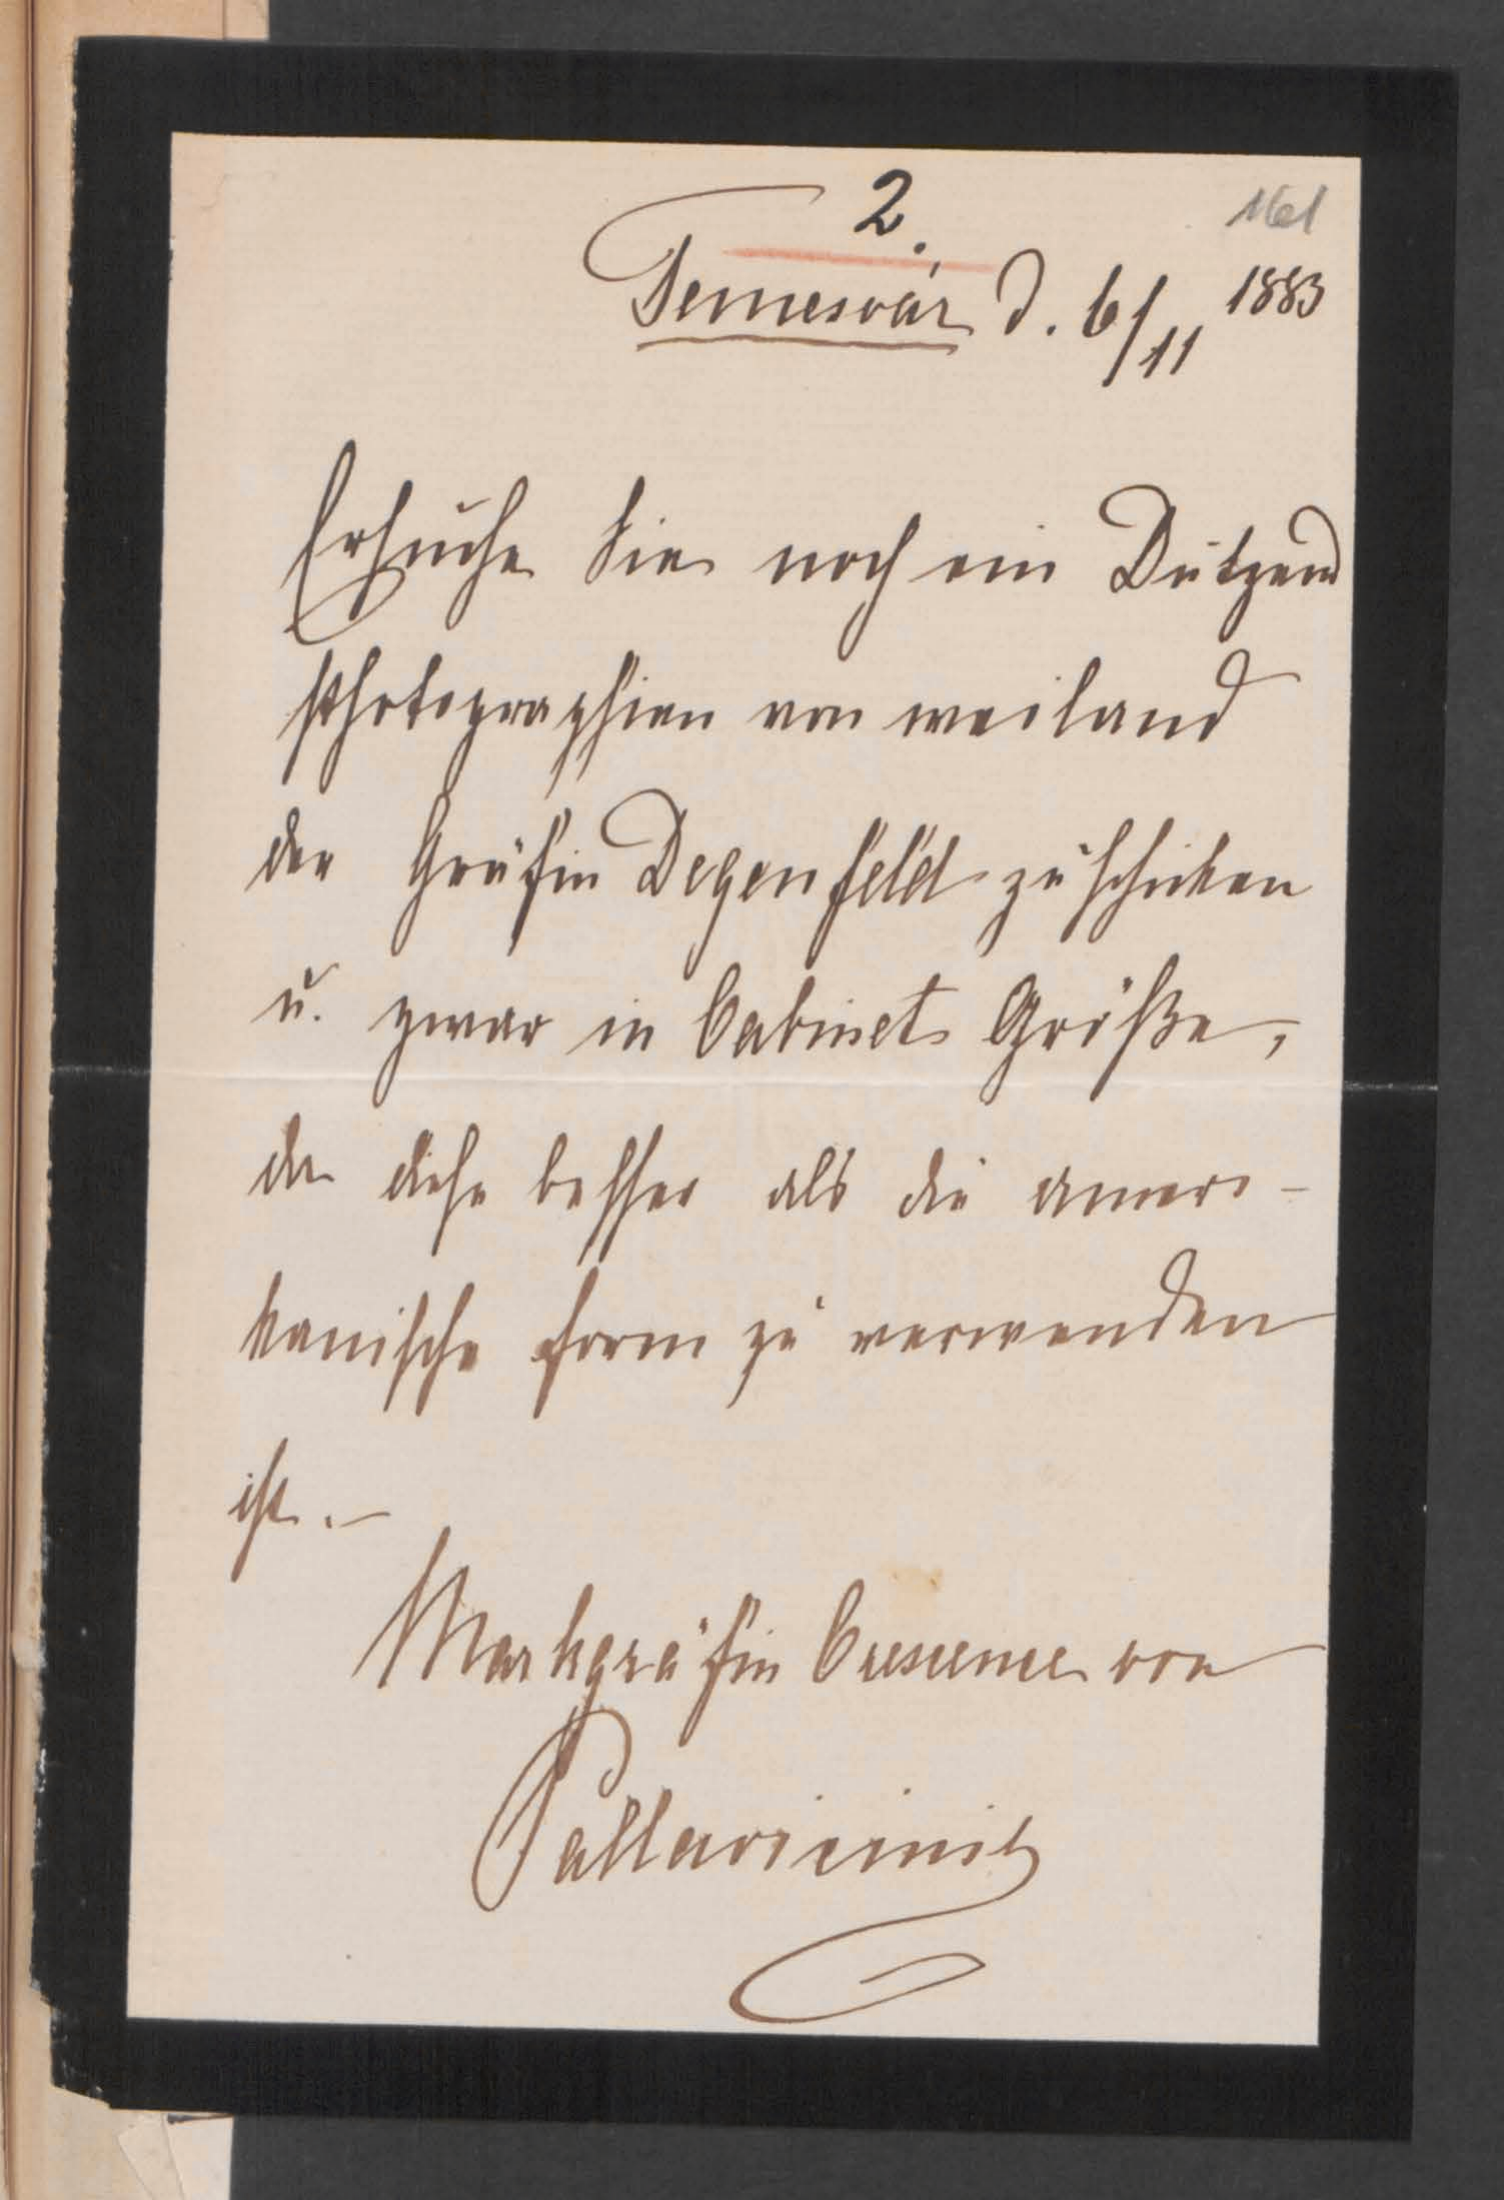 2.
161
Temesvár d. 6/11 1883
Ersuche Sie noch ein Dutzend
Photographien von weiland
der Gräfin Degenfeld zu schicken
u. zwar in Cabinet Größe,
da diese besser als die ameri-
kanische Form zu verwenden
ist. –
Markgräfin Crescence von
Pallavicini